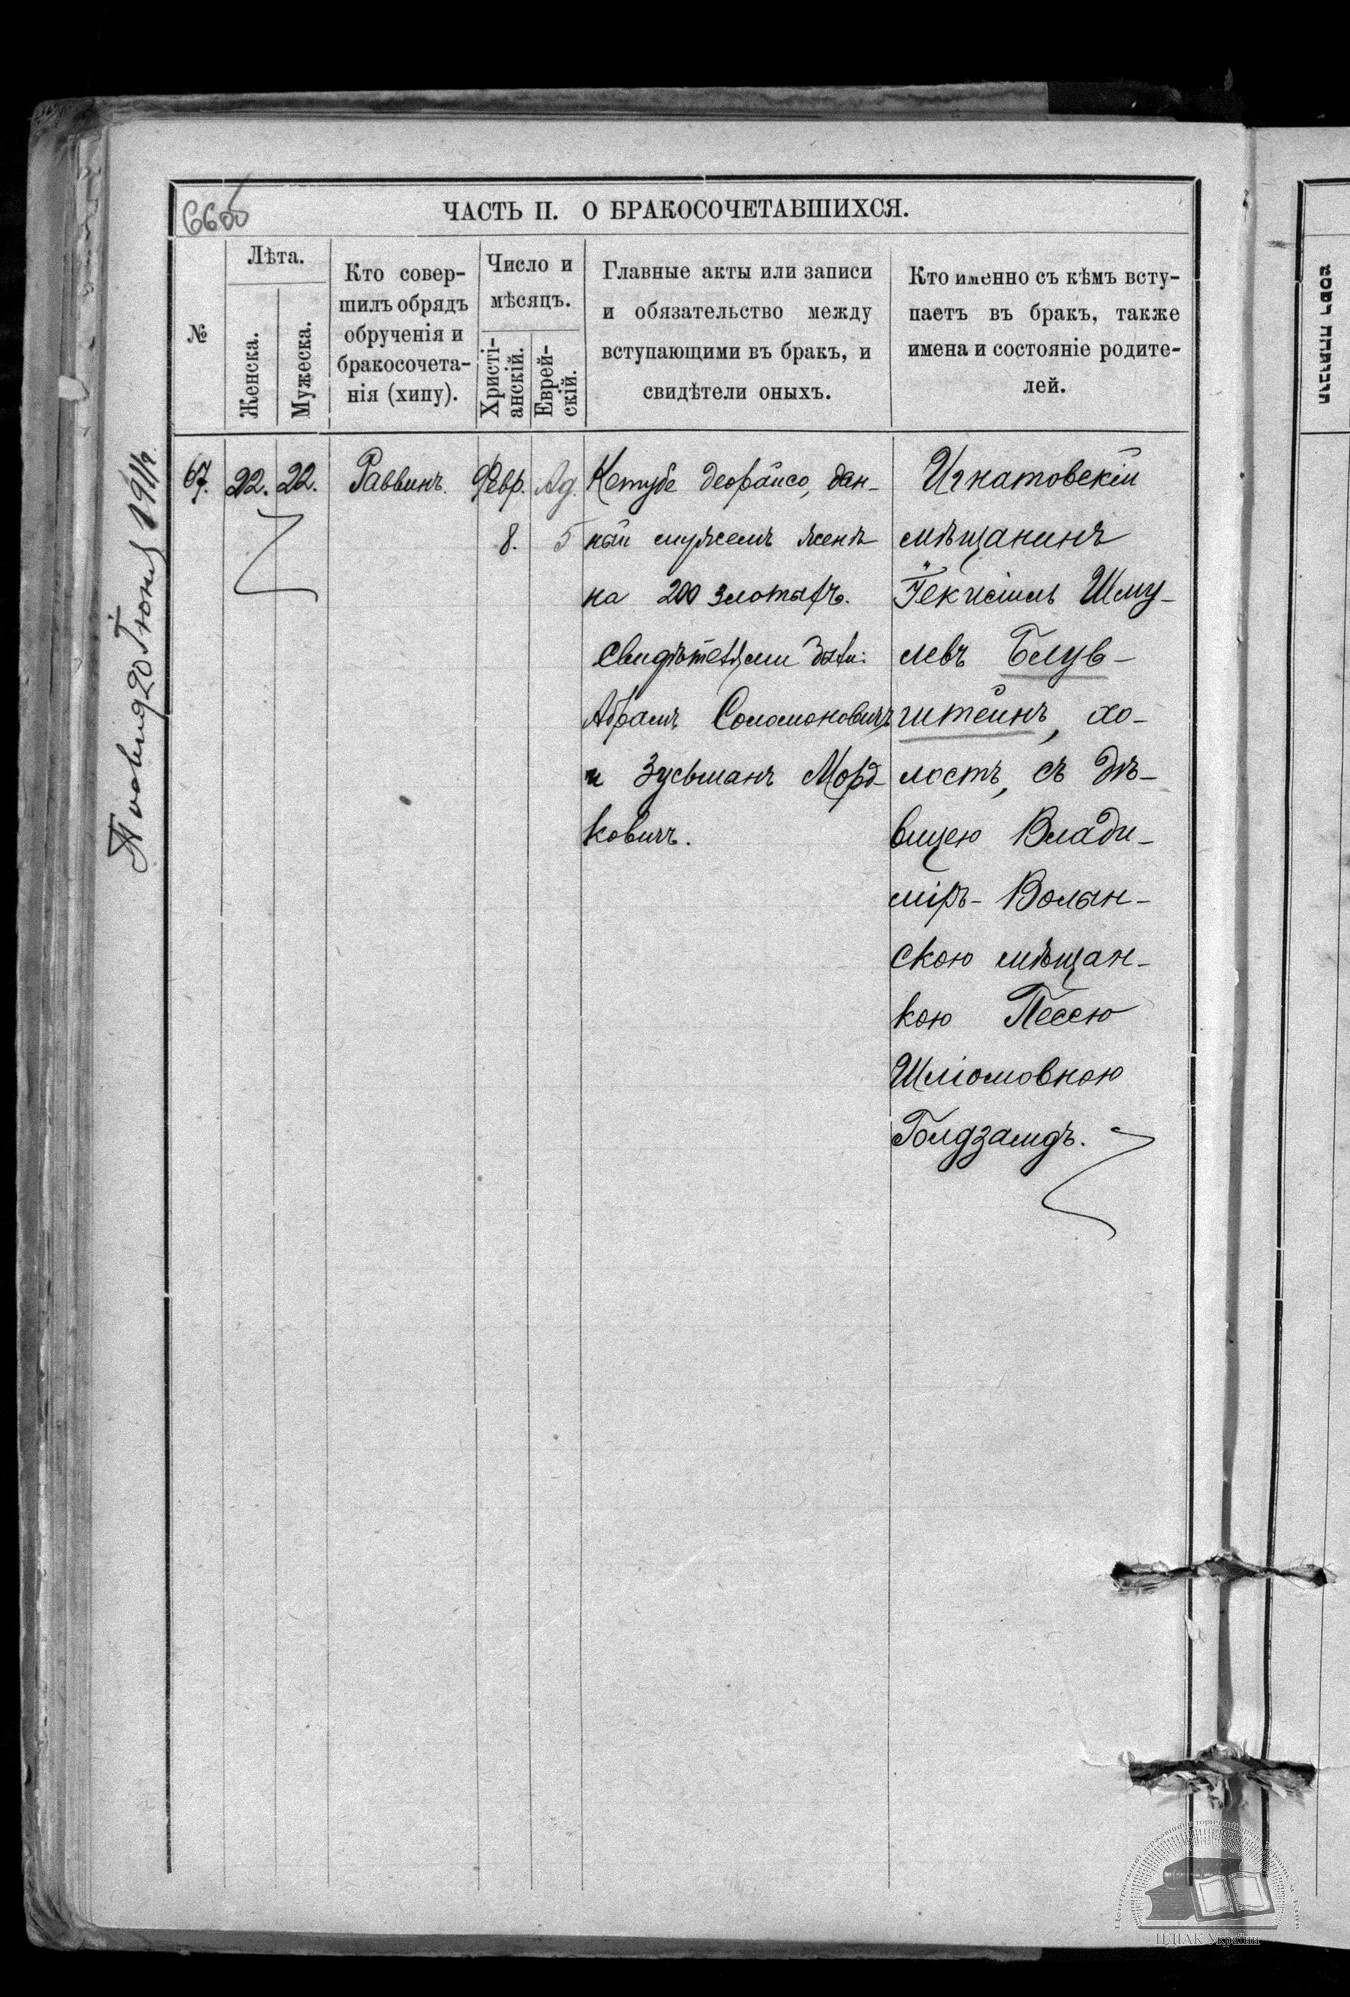 ЧАСТЬ II. О БРАКОСОЧЕТАВШИХСЯ.
№
Лѣта.
Женска.
Мужеска.
Кто совер-
шилъ обрядъ
обрученія и
бракосочета-
нія (хипу).
Число и
мѣсяцъ.
Христі-
анскій.
Еврей-
скій.
Главные акты или записи
и обязательство между
вступающими въ бракъ, и
свидѣтели оныхъ.
Кто именно съ кѣмъ всту-
паетъ въ бракъ, также
имена и состояніе родите-
лей.
67.
22.
22.
Раввинъ.
Февр.
8.
Ад.
5
Кетубе деорайсо, дан-
ный мужемъ женѣ
на 200 злотыхъ.
Свидѣтелями были:
Абрамъ Соломоновичъ
и Зусьманъ Морд-
ковичъ.
Игнатовскій
мѣщанинъ
Іекисіель Шму-
левъ Блув-
штейнъ, хо-
лостъ, съ дѣ-
вицею Влади-
міръ-Волын-
скою мѣщан-
кою Песею
Шліомовною
Голдзамдъ.
20 Іюня 1911 г.
ЦДІАК України